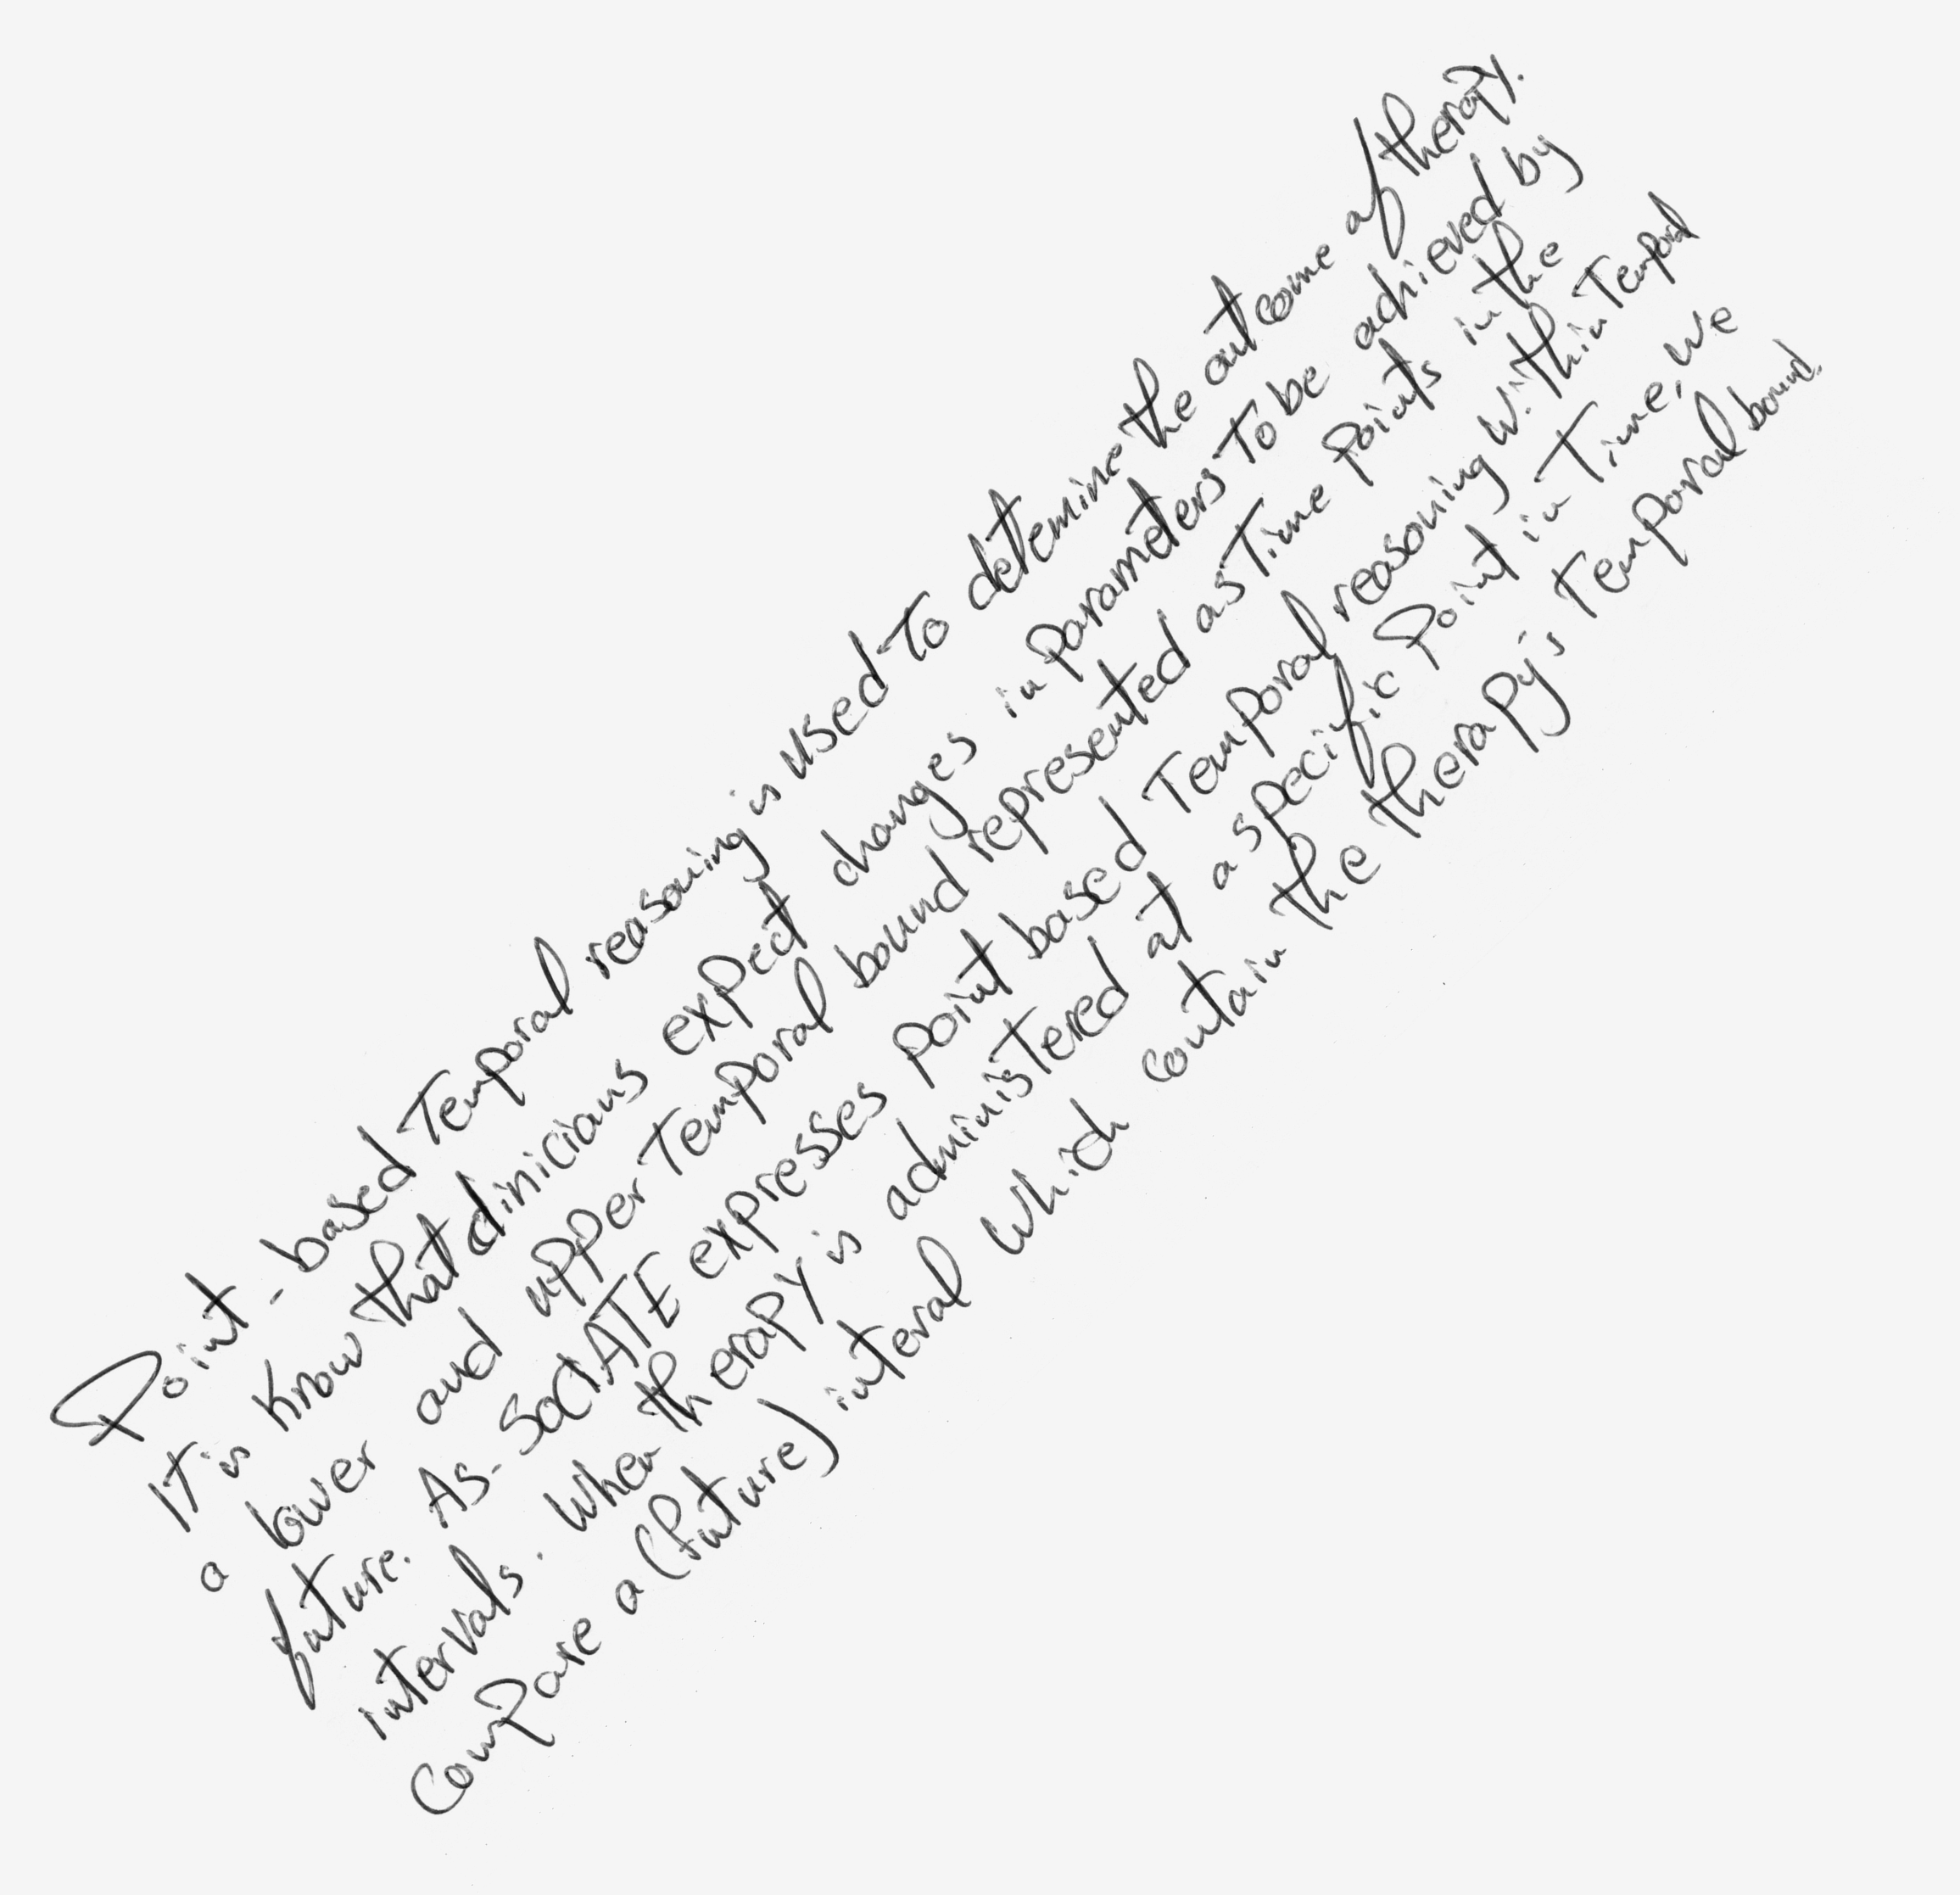 Point-based Temporal reasoning is used to determine the outcome of therapy.
It is know that clinicians expect changes in parameters to be achieved by
a lower and upper temporal bound represented as time points in the
future. As. SOCIATE expresses point based temporal reasoning within temporal
intervals. When therapy is administered at a specific point in time, we
Compare a (future) interal which contain the therapy's temporal bound.